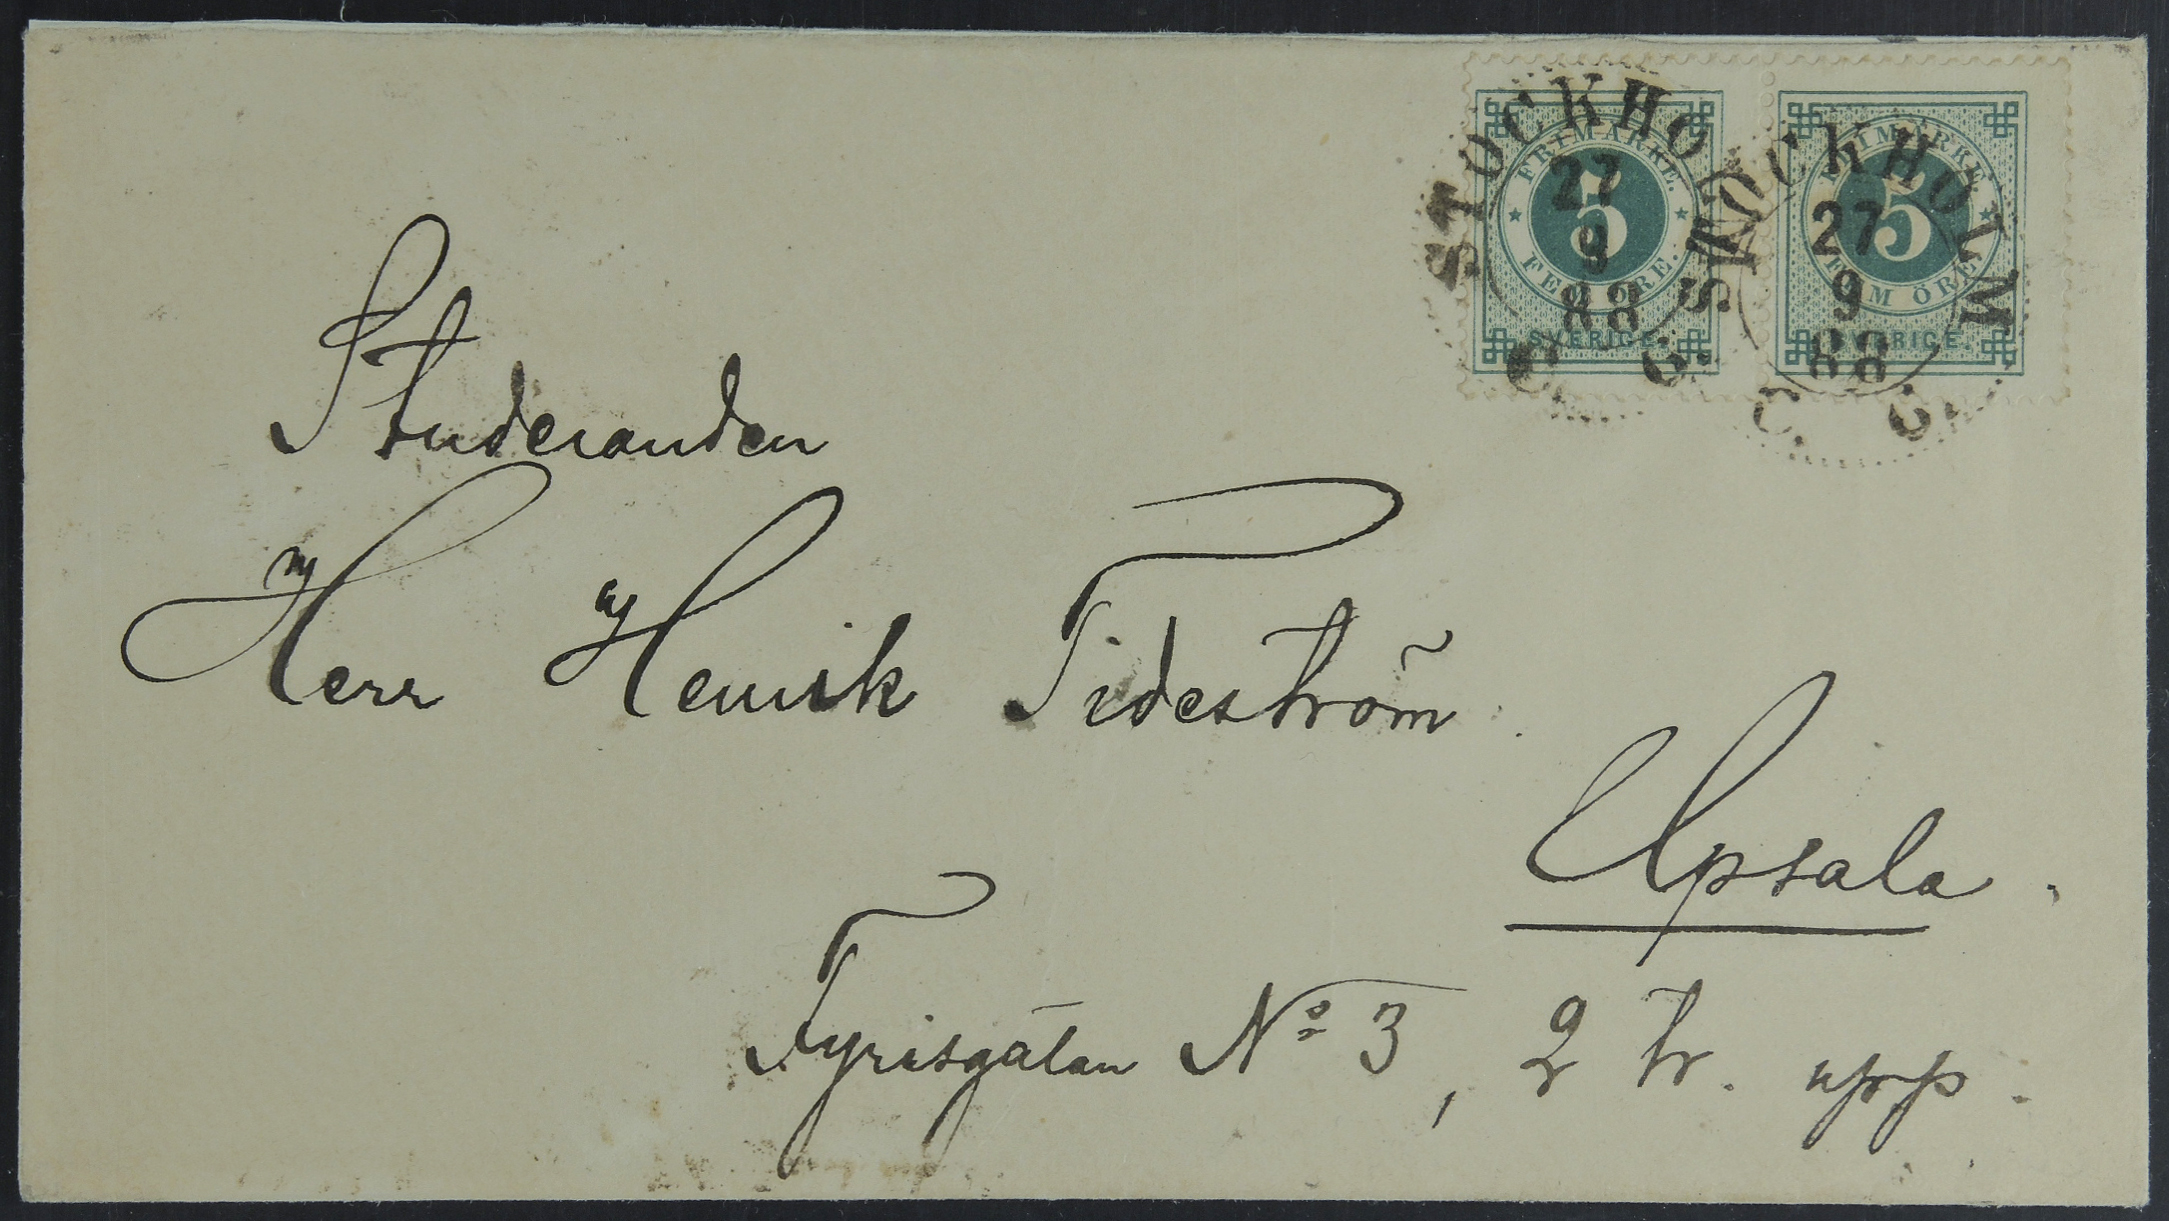 STOCKHOLM
27
9
88
C. 6.
FRIMÄRKE.
5
FEM ÖRE.
SVERIGE.
STOCKHOLM
27
9
88
C. 5.
FRIMÄRKE.
5
FEM ÖRE.
SVERIGE.
Studeranden
Herr Henrik Tideström
Upsala.
Fyrisgatan No 3, 2 tr. upp.